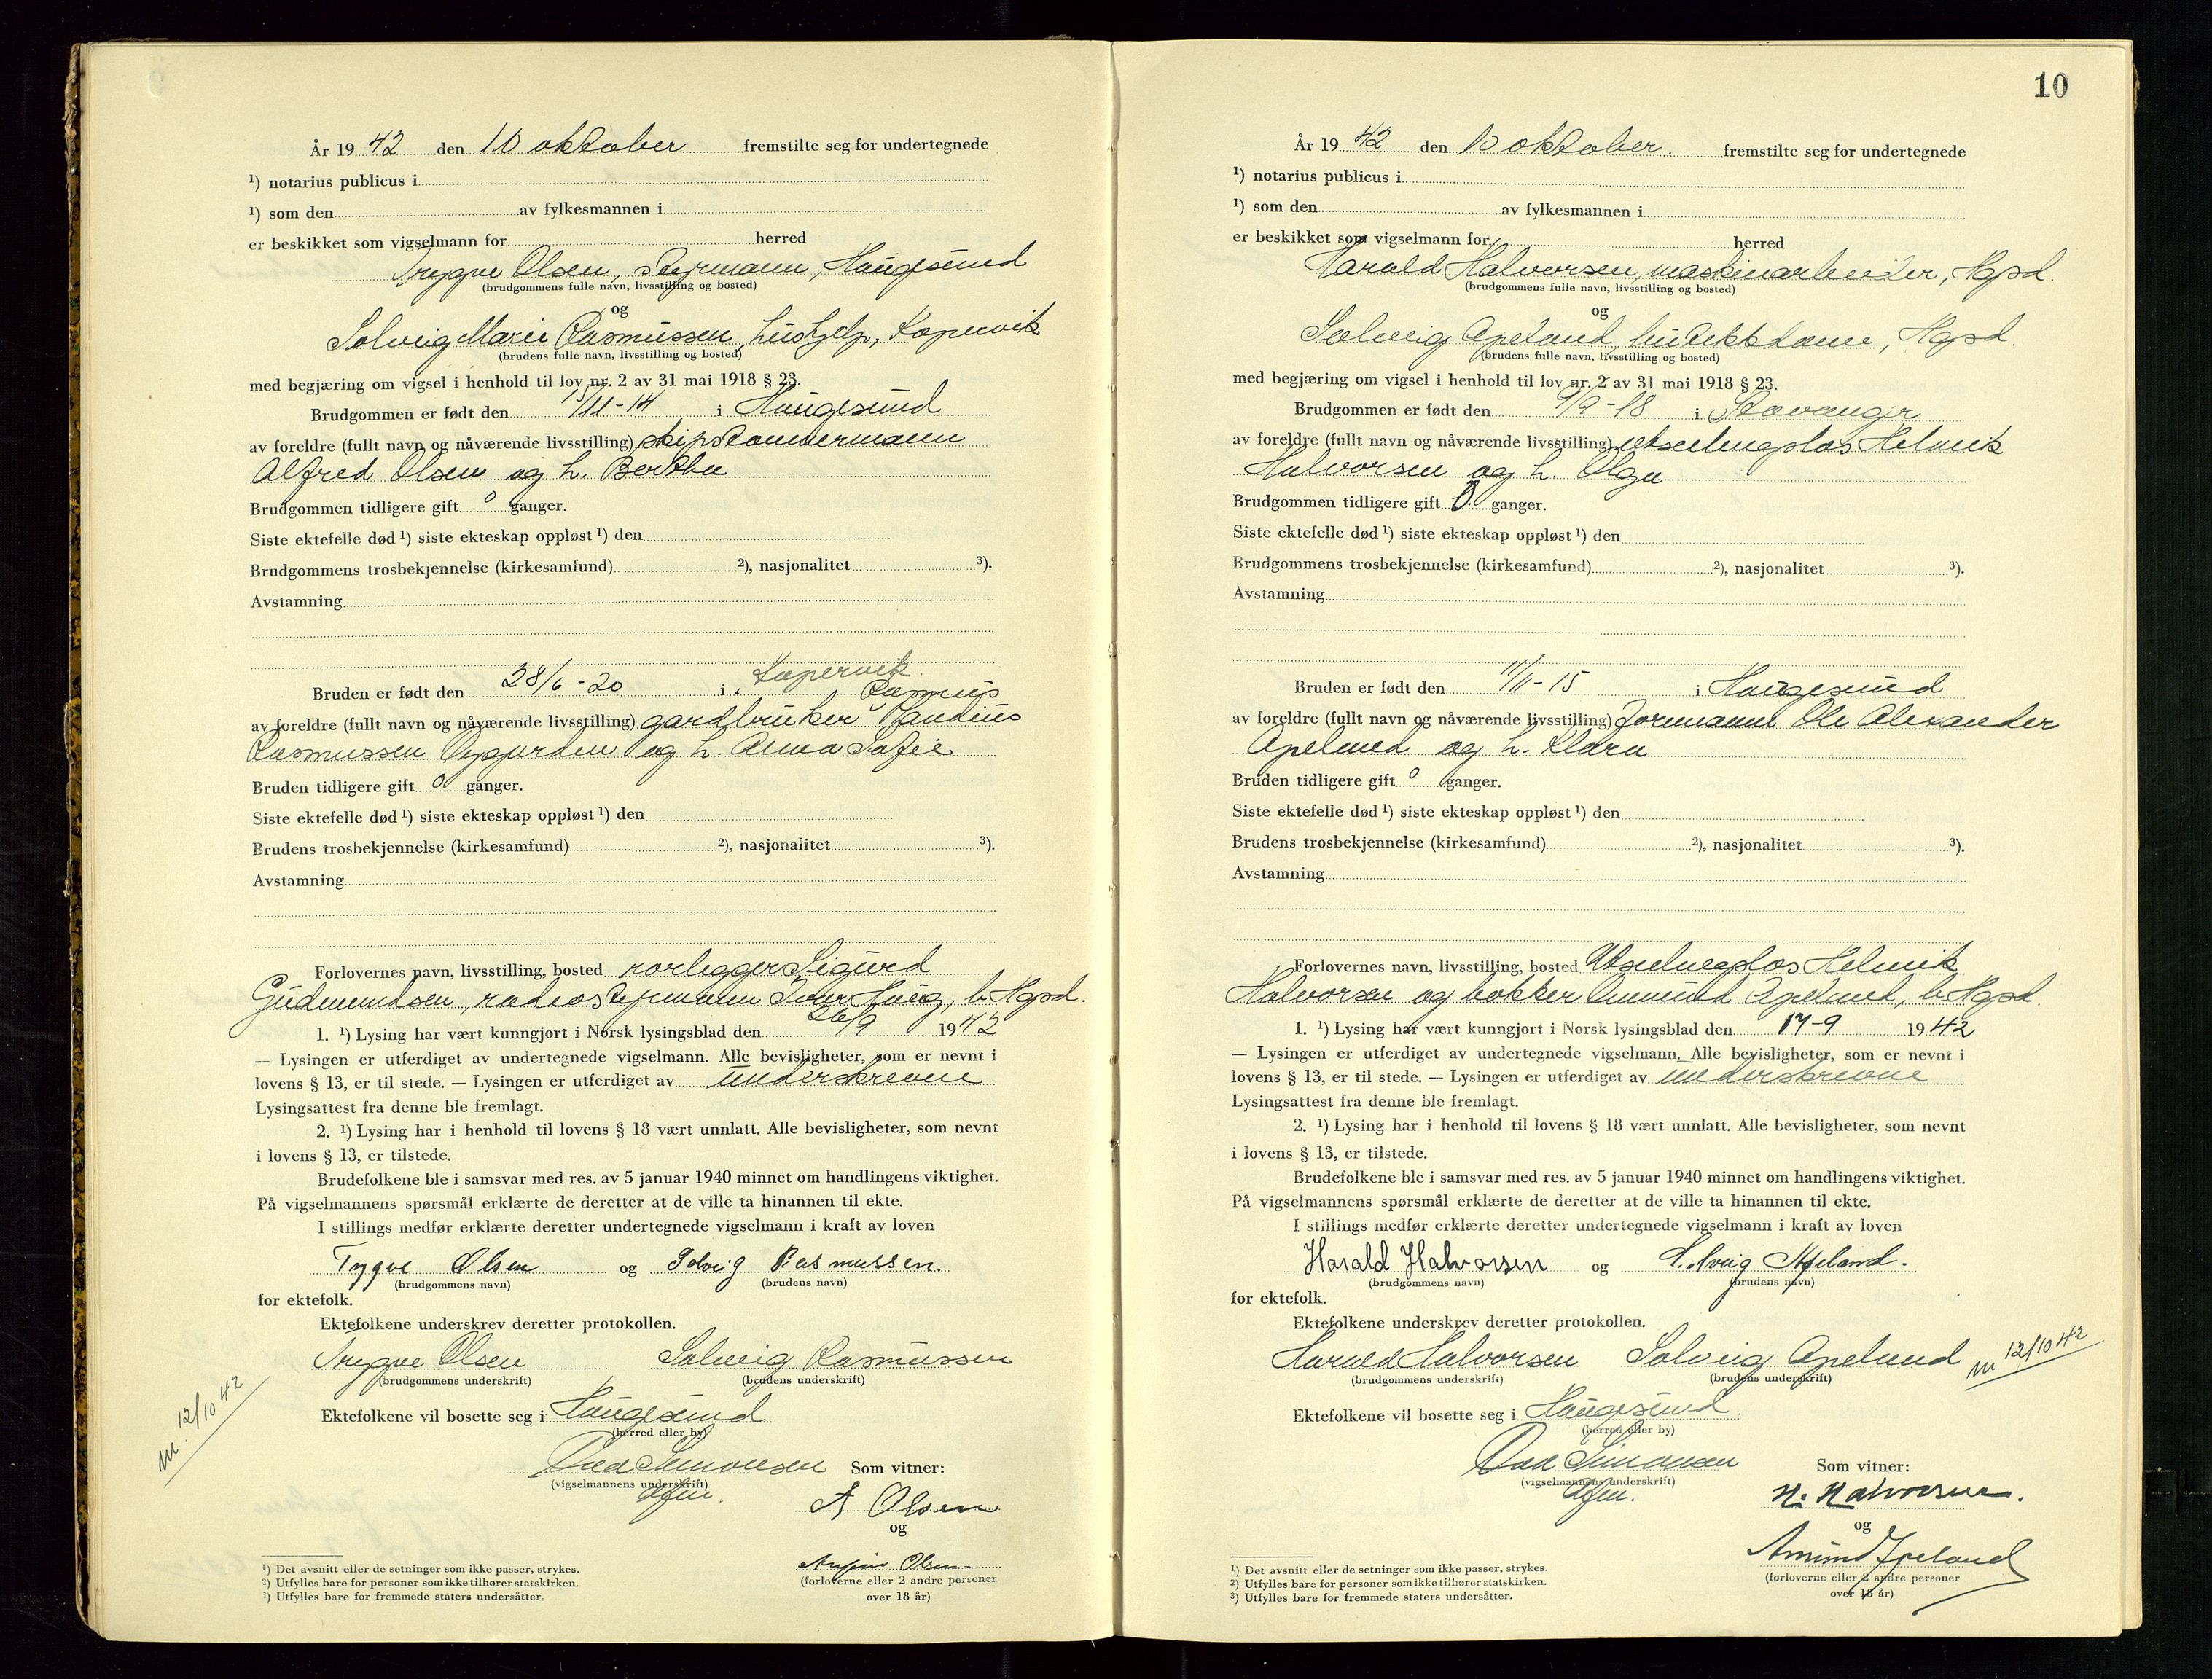 År 19 42 den 10 oktober fremstilte seg for undertegnede
¹) notarius publicus i
¹) som den av fylkesmannen i
er beskikket som vigselmann for herred
Trygve Olsen, styrmann, Haugesund
(brudgommens fulle navn, livsstilling og bosted)
og
Solveig Marie Rasmussen, hushjelp, Kopervik
(brudens fulle navn, livsstilling og bosted)
med begjæring om vigsel i henhold til lov nr. 2 av 31 mai 1918 § 23.
Brudgommen er født den /11-14 i Haugesund
av foreldre (fullt navn og nåværende livsstilling) skipstømmermann
Alfred Olsen og h. Berthe
Brudgommen tidligere gift 0 ganger.
Siste ektefelle død ¹) siste ekteskap oppløst ¹) den
Brudgommens trosbekjennelse (kirkesamfund) ²), nasjonalitet ³).
Avstamning
Bruden er født den 28/6-20 i Kopervik.
Rasmus
av foreldre (fullt navn og nåværende livsstilling) gardbruker Randius
Rasmussen og h. Anna Sofie
Bruden tidligere gift 0 ganger.
Siste ektefelle død ¹) siste ekteskap oppløst ¹) den
Brudens trosbekjennelse (kirkesamfund) ²), nasjonalitet ³).
Avstamning
Forlovernes navn, livsstilling, bosted rørlegger Sigurd
Gudmundsen, radiostyrmann Haug, b. Hgsd.
1. ¹) Lysing har vært kunngjort i Norsk lysingsblad den 26/9 1942
— Lysingen er utferdiget av undertegnede vigselmann. Alle bevisligheter, som er nevnt i
lovens § 13, er til stede. — Lysingen er utferdiget av underskrevne
Lysingsattest fra denne ble fremlagt.
2. ¹) Lysing har i henhold til lovens § 18 vært unnlatt. Alle bevisligheter, som nevnt
i lovens § 13, er tilstede.
Brudefolkene ble i samsvar med res. av 5 januar 1940 minnet om handlingens viktighet.
På vigselmannens spørsmål erklærte de deretter at de ville ta hinannen til ekte.
I stillings medfør erklærte deretter undertegnede vigselmann i kraft av loven
Trygve Olsen og Solveig Rasmussen.
(brudgommens navn) (brudens navn)
for ektefolk.
Ektefolkene underskrev deretter protokollen.
Trygve Olsen Solveig Rasmussen
(brudgommens underskrift) (brudens underskrift)
m. 12/10 42
Ektefolkene vil bosette seg i Haugesund
(herred eller by)
Simonsen Som vitner:
(vigselmannens underskrift)
A Olsen
og
Olsen
(forloverne eller 2 andre personer
over 18 år)
¹) Det avsnitt eller de setninger som ikke passer, strykes.
²) Utfylles bare for personer som ikke tilhører statskirken.
³) Utfylles bare for fremmede staters undersåtter.
10
År 19 42 den 10 oktober. fremstilte seg for undertegnede
¹) notarius publicus i
¹) som den av fylkesmannen i
er beskikket som vigselmann for herred
Harald Halvorsen, maskinarbeider, Hgsd.
(brudgommens fulle navn, livsstilling og bosted)
og
Solveig Apeland, butikkdame, Hgsd.
(brudens fulle navn, livsstilling og bosted)
med begjæring om vigsel i henhold til lov nr. 2 av 31 mai 1918 § 23.
Brudgommen er født den 9/9-18 i Stavanger
av foreldre (fullt navn og nåværende livsstilling) utseilingslos Helmik
Halvorsen og h. Olga
Brudgommen tidligere gift 0 ganger.
Siste ektefelle død ¹) siste ekteskap oppløst ¹) den
Brudgommens trosbekjennelse (kirkesamfund) ²), nasjonalitet ³).
Avstamning
Bruden er født den 11/11-15 i Haugesund
av foreldre (fullt navn og nåværende livsstilling) formann Ole Alexander
Apeland og h. Klara
Bruden tidligere gift 0 ganger.
Siste ektefelle død ¹) siste ekteskap oppløst ¹) den
Brudens trosbekjennelse (kirkesamfund) ²), nasjonalitet ³).
Avstamning
Forlovernes navn, livsstilling, bosted Utseilingslos Helmik
Halvorsen og bøkker Ammund Apeland, b. Hgsd.
1. ¹) Lysing har vært kunngjort i Norsk lysingsblad den 17-9 1942
— Lysingen er utferdiget av undertegnede vigselmann. Alle bevisligheter, som er nevnt i
lovens § 13, er til stede. — Lysingen er utferdiget av underskrevne
Lysingsattest fra denne ble fremlagt.
2. ¹) Lysing har i henhold til lovens § 18 vært unnlatt. Alle bevisligheter, som nevnt
i lovens § 13, er tilstede.
Brudefolkene ble i samsvar med res. av 5 januar 1940 minnet om handlingens viktighet.
På vigselmannens spørsmål erklærte de deretter at de ville ta hinannen til ekte.
I stillings medfør erklærte deretter undertegnede vigselmann i kraft av loven
Harald Halvorsen og Solveig Apeland.
(brudgommens navn) (brudens navn)
for ektefolk.
Ektefolkene underskrev deretter protokollen.
Harald Halvorsen Solveig Apeland m 12/10 42
(brudgommens underskrift) (brudens underskrift)
Ektefolkene vil bosette seg i Haugesund.
(herred eller by)
Simonsen Som vitner:
(vigselmannens underskrift)
H. Halvorsen.
og
Amund Apeland
(forloverne eller 2 andre personer
over 18 år)
¹) Det avsnitt eller de setninger som ikke passer, strykes.
²) Utfylles bare for personer som ikke tilhører statskirken.
³) Utfylles bare for fremmede staters undersåtter.